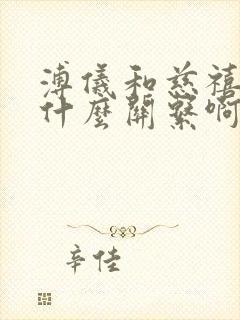 溥儀和慈禧
什麼關繫啊
辛佳